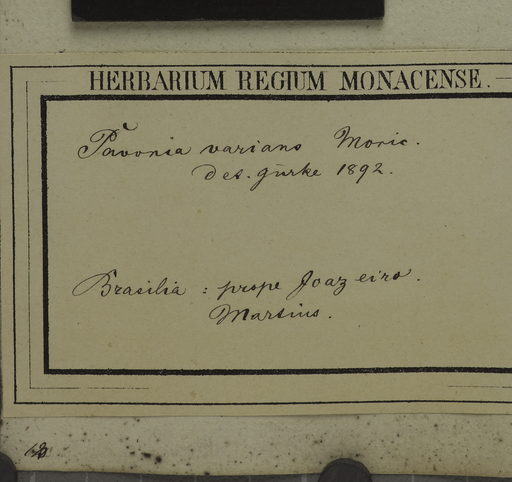 HERBARIUM REGIUM MONACENSE.
Pavonia varians Moric.
det. Gürke 1892.
Brasilia : prope Joazeiro.
Martius.